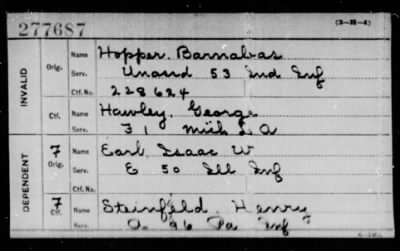 277687
(3-H-4)
INVALID
Orig.
Name Hopper Barnabas
Serv. Unasd 53 Ind Inf
Ctf. No. 228624
Ctf.
Name Hawley, George
Serv. 31 Mich L A
DEPENDENT
7
Orig.
Name Earl, Isaac W
Serv. E 50 Ill Inf
Ctf. No.
7
Ctf.
Name Steinfeld Henry
Serv. 96 Pa Inf